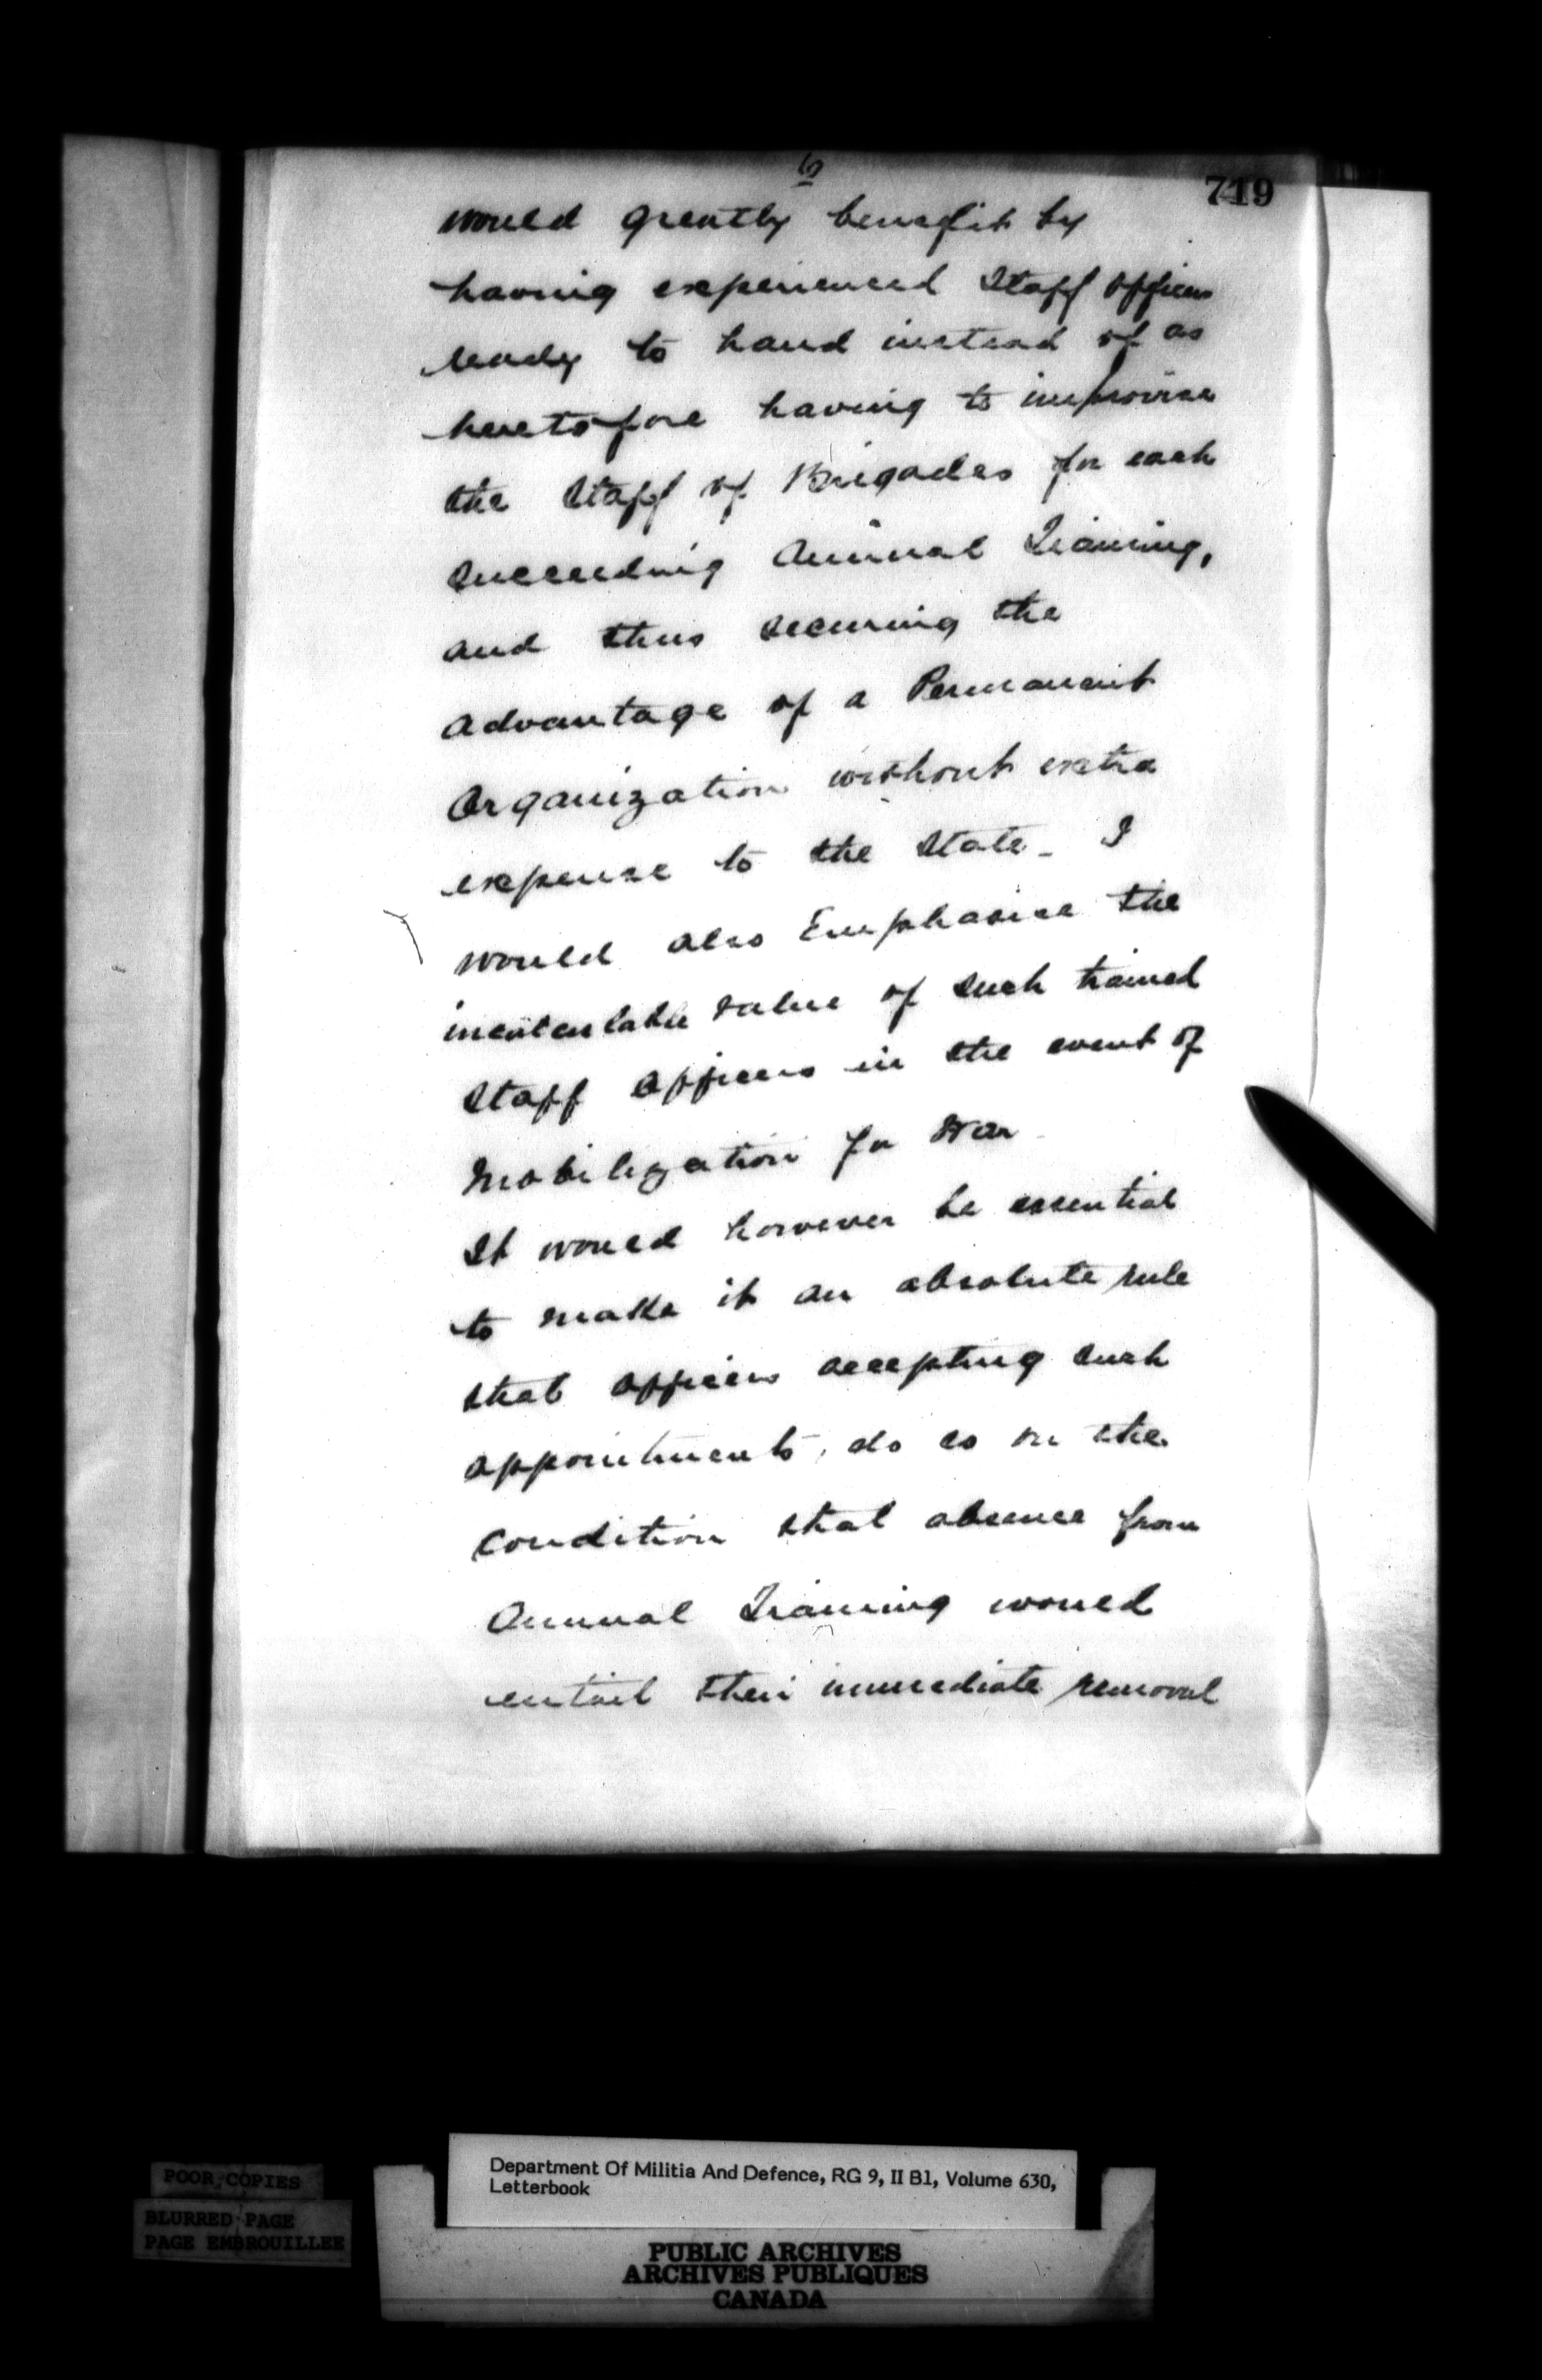 6
719
would greatly benefit by
having experienced Staff Officers
ready to hand instead of as
heretofore having to improvise
the Staff of Brigades for each
succeeding Annual Training,
and thus securing the
advantage of a Permanent
Organization without extra
expense to the State - I
would also Emphasise the
incalculable value of such trained
Staff Officers in the event of
Mobilization for War -
It would however be essential
to make it an absolute rule
that Officers accepting such
appointments, do so on the
condition that absence from
Annual Training would
entail their immediate removal
POOR COPIES
BLURRED PAGE
PAGE EMBROUILLEE
Department Of Militia And Defence, RG 9, II B1, Volume 630,
Letterbook
PUBLIC ARCHIVES
ARCHIVES PUBLIQUES
CANADA